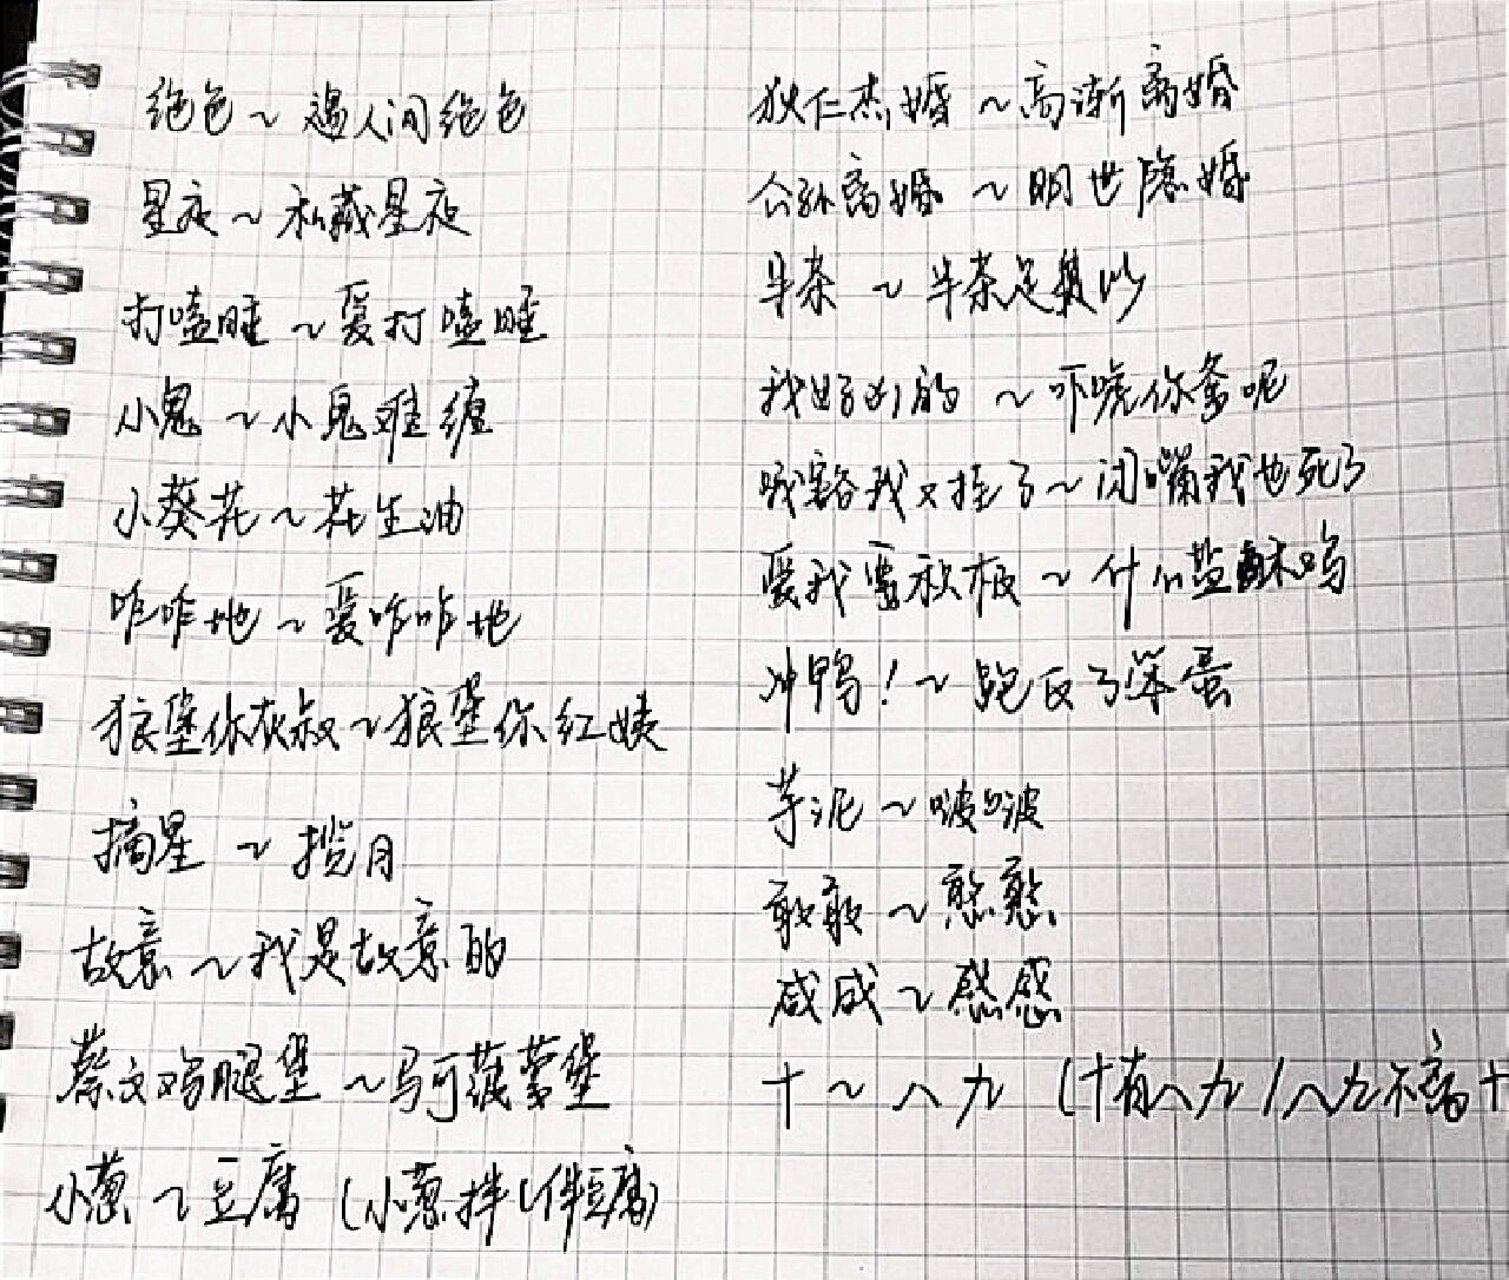 绝色~遇人间绝色
星夜~私藏星夜
打瞌睡~爱打瞌睡
小鬼~小鬼难缠
小葵花~花生油
咋咋地~爱咋咋地
狼堡你灰叔~狼堡你红姨
摘星~揽月
故意~我是故意的
蔡文鸡腿堡~马可菠萝堡
小葱~豆腐(小葱拌 拌豆腐)
狄仁杰婚~高渐离婚
公孙离婚~明世隐婚
半茶~半茶足矣
我好凶的~吓唬你爹呢
哦豁我又挂了~闭嘴我也死了
爱我要积极~什么盐酥鸡
冲鸭!~跑反了笨蛋
芋泥~啵啵
敢敢~憨憨
咸咸~感感
十~八九(十有八九/八九不离十